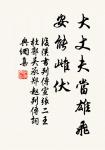 大丈夫當雄飛
安能雌伏
後漢書列傳宣張二王
杜郭吳承鄭趙列傳詞
典網集